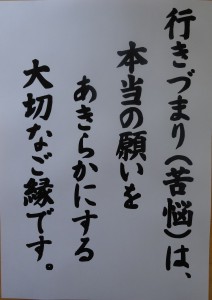 行きづまり（苦悩）は、
本当の願いを
あきらかにする
大切なご縁です。